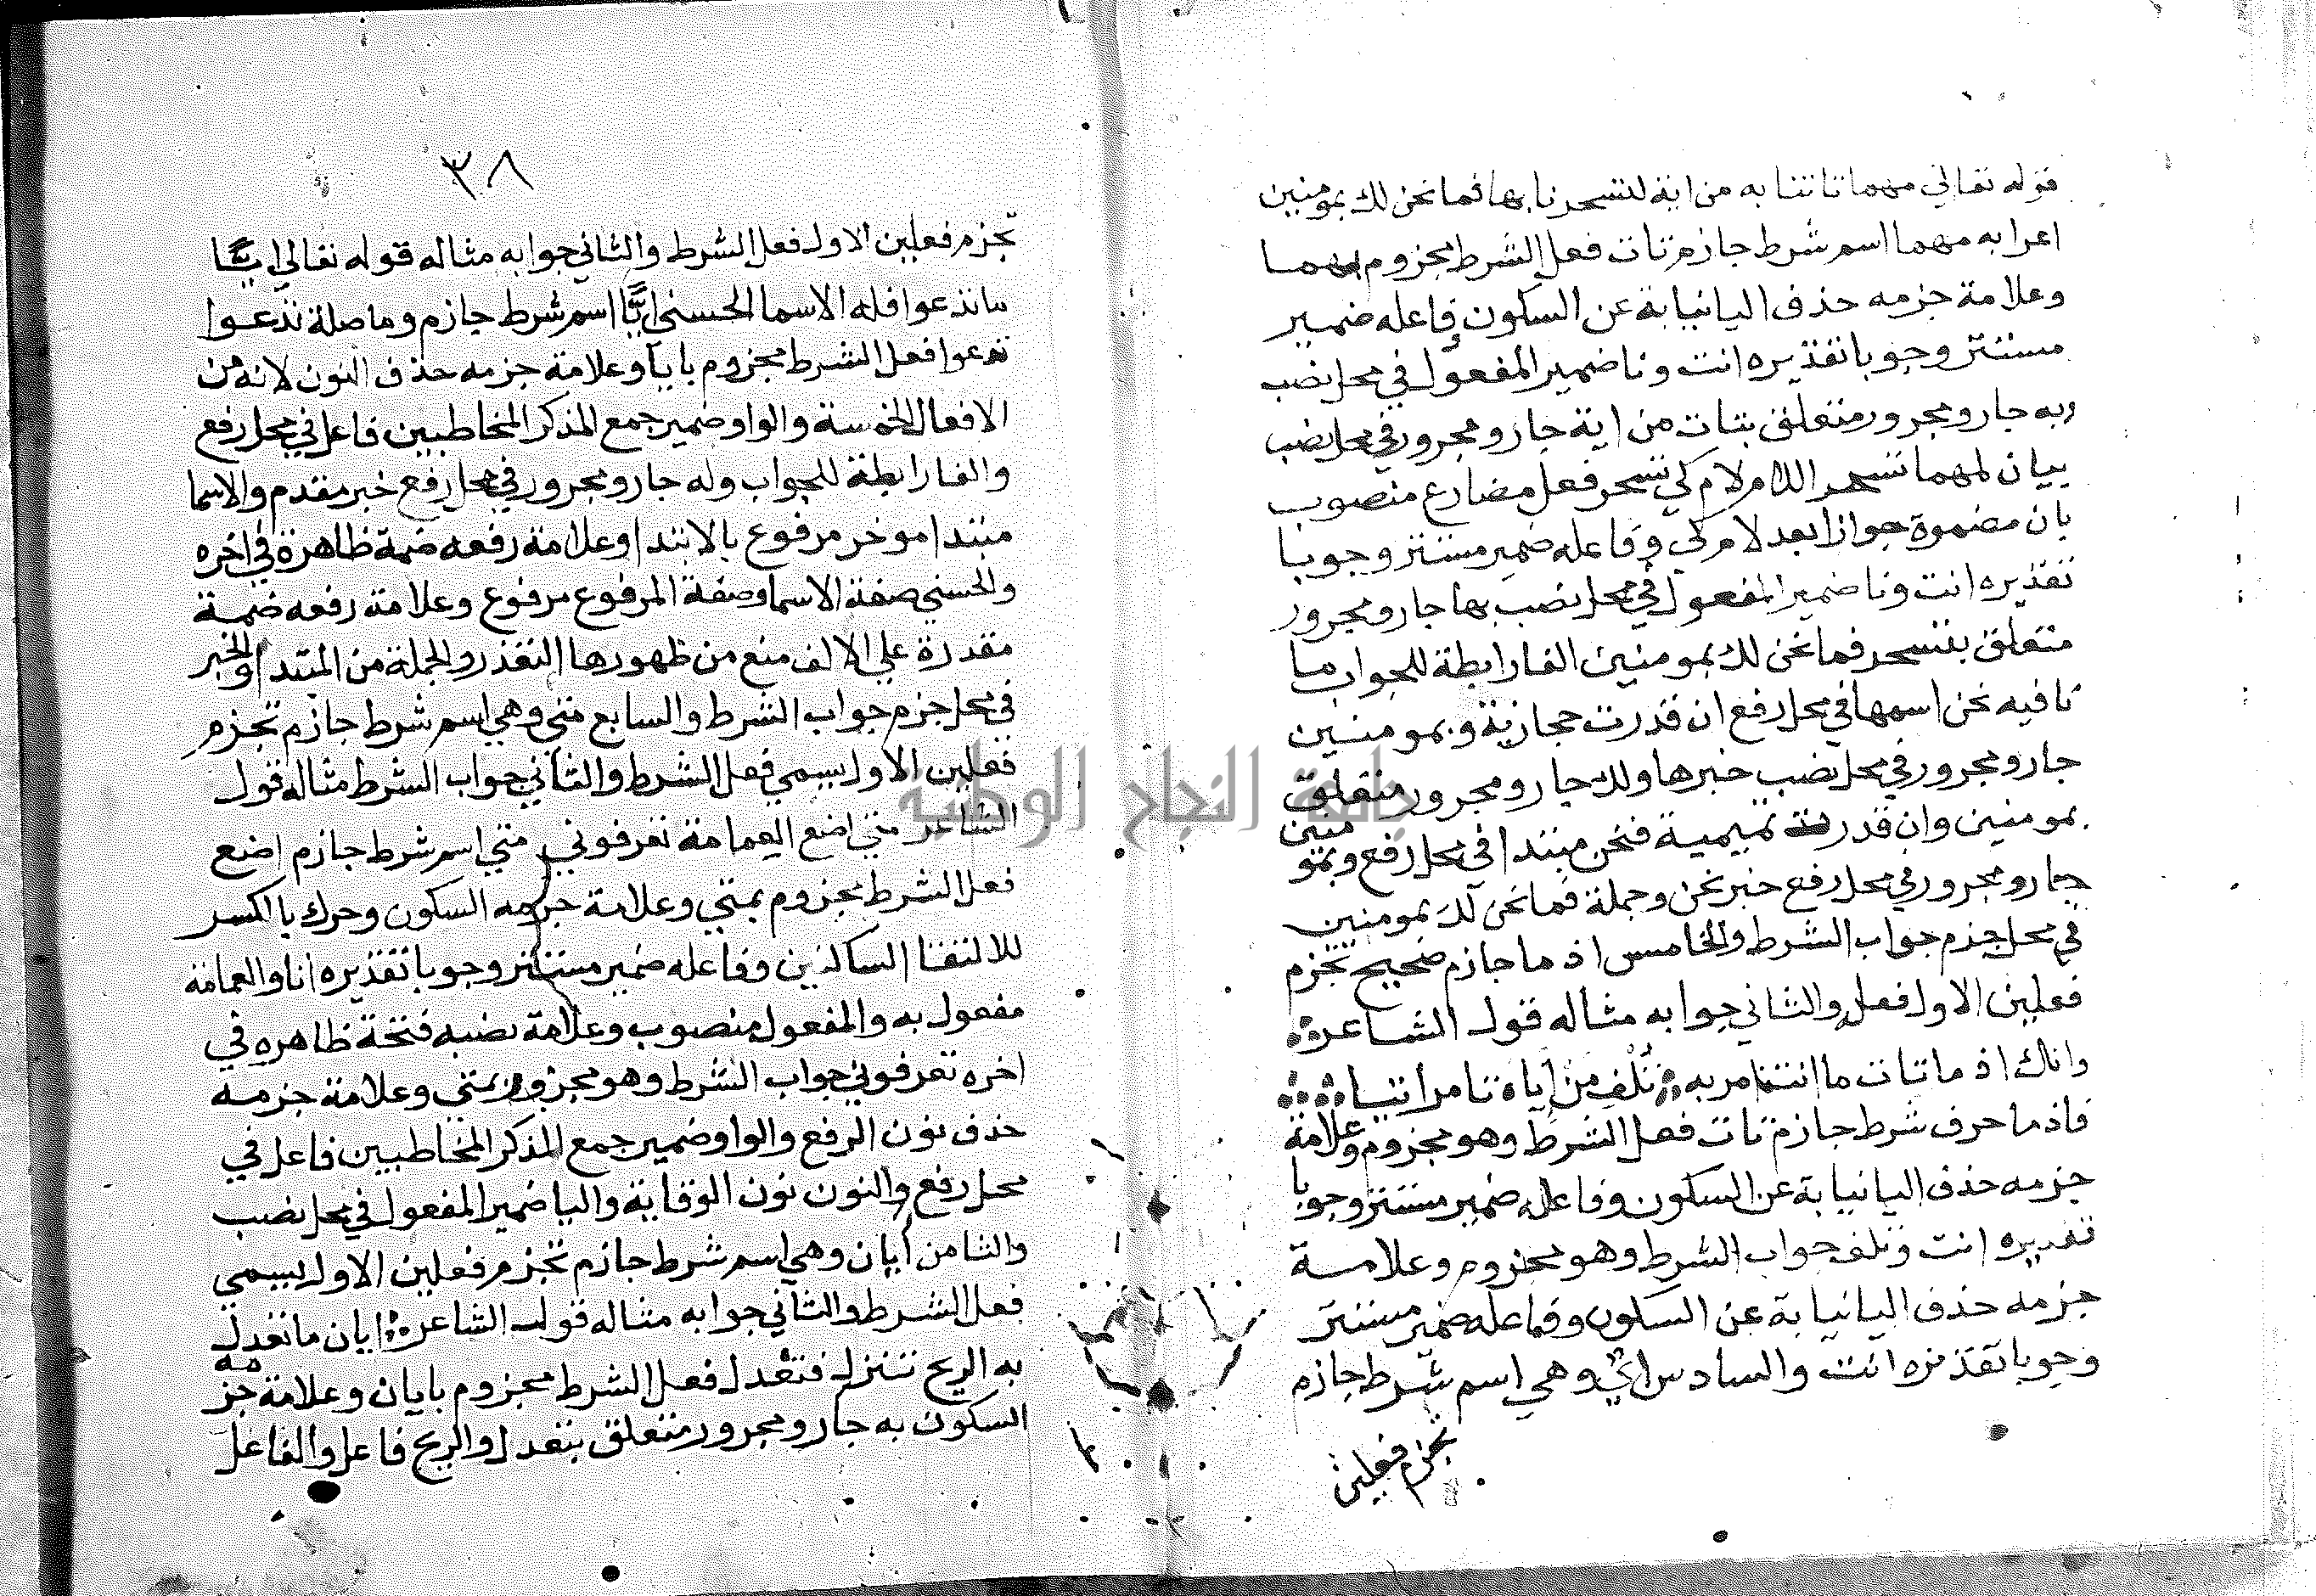 قوله تعالي مهما تاتنا به من اية لتسحرنا بها فما نحن لك بمومنين
اعرابه مهما اسم شرط جازم تات فعل الشرط مجزوم بمهما
وعلامة جزمه حذف اليا نيابة عن السكون وفاعله ضمير
مستتر وجوبا تقديره انت ونا ضمير المفعول في محل نصب
وبه جار ومجرور متعلق بتات من اية جار ومجرور في محل نصب
بيان لمهما تسحر اللام لام كي تسحر فعل مضارع منصوب
بان مضموة جوازا بعد لام كي وفاعله ضمير مستتر وجوبا
تقديره انت ونا ضمير المفعول في محل نصب بها جار ومجرور
متعلق بتسحر فما نحن لك بمومنين الفا رابطة للجواب ما
نافيه نحن اسمها في محل رفع ان قدرت حجازية وبمومنين
جار ومجرور في محل نصب خبرها ولك جار ومجرور متعلق
بمومنين وان قدرت تميمية فنحن مبتدا في محل رفع وبمومنين
جار ومجرور في محل رفع خبر نحن وجملة فما نحن لك بمومنين
في محل جزم جواب الشرط والخامس اذ ما جازم صحيح تجزم
فعلين الاول فعل والثاني جوابه مثاله قول الشاعر
وانك اذ ما تات ما انت امر به تلف من اياه تامر اتيا
فاذ ما حرف شرط جازم تات فعل الشرط وهو مجزوم وعلامة
جزمه حذف اليا نيابة عن السكون وفاعله ضمير مستتر وجوبا
تقديره انت وتلف جواب الشرط وهو مجزوم وعلامة
جزمه حذف اليا نيابة عن السكون وفاعله ضمير مستتر
وجوبا تقديره انت والسادس اي وهي اسم شرط جازم
تجزم فعلين
٣٨
تجزم فعلين الاول فعل الشرط والثاني جوابه مثاله قوله تعالي ايًّا
ما تدعوا فله الاسما الحسني ايًّا اسم شرط جازم وما صلة تدعوا
تدعوا فعل الشرط مجزوم بايا وعلامة جزمه حذف النون لانه من
الافعال الخمسة والواو ضمير جمع المذكر المخاطبين فاعل في محل رفع
والفا رابطة للجواب وله جار ومجرور في محل رفع خبر مقدم والاسما
مبتدا موخر مرفوع بالابتدا وعلامة رفعه ضمة ظاهرة في اخره
والحسني صفة الاسما وصفة المرفوع مرفوع وعلامة رفعه ضمة
مقدرة علي الالف منع من ظهورها التعذر والجملة من المبتدا والخبر
في محل جزم جواب الشرط والسابع متي وهي اسم شرط جازم تجزم
فعلين الاول يسمي فعل الشرط والثاني جواب الشرط مثاله قول
الشاعر متي اضع العمامة تعرفوني متي اسم شرط جازم اضع
فعل الشرط مجزوم بمتي وعلامة جزمه السكون وحرك بالكسر
للالتقا الساكنين وفاعله ضمير مستتر وجوبا تقديره انا والعمامة
مفعول به والمفعول منصوب وعلامة نصبه فتحة ظاهره في
اخره تعرفوني جواب الشرط وهو مجزوم بمتي وعلامة جزمه
حذف نون الرفع والواو ضمير جمع المذكر المخاطبين فاعل في
محل رفع والنون نون الوقاية واليا ضمير المفعول في محل نصب
والثامن أيان وهي اسم شرط جازم تجزم فعلين الاول يسمي
فعل الشرط والثاني جوابه مثاله قول الشاعر ايان ما تعدل
به الريح تنزل فتعدل فعل الشرط مجزوم بايان وعلامة جزمه
السكون به جار ومجرور متعلق بتعدل والريح فاعل والفاعل
جامعة النجاح الوطنية